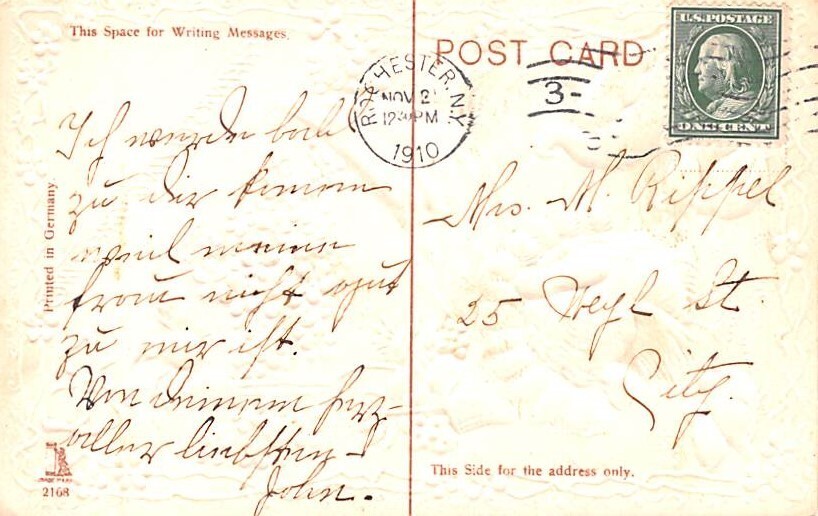 This Space for Writing Messages.
POST CARD
U.S. POSTAGE
ONE CENT
ROCHESTER, N.Y.
NOV 2
12 30 PM
1910
3
Ich werde bald
zu dir kommen
weil meine
frau nicht gut
zu mir ist.
Von deinem herz-
aller liebsten
John.
Mrs. M. Rippel
25 Weyl St.
City.
Printed in Germany
2168
This Side for the address only.